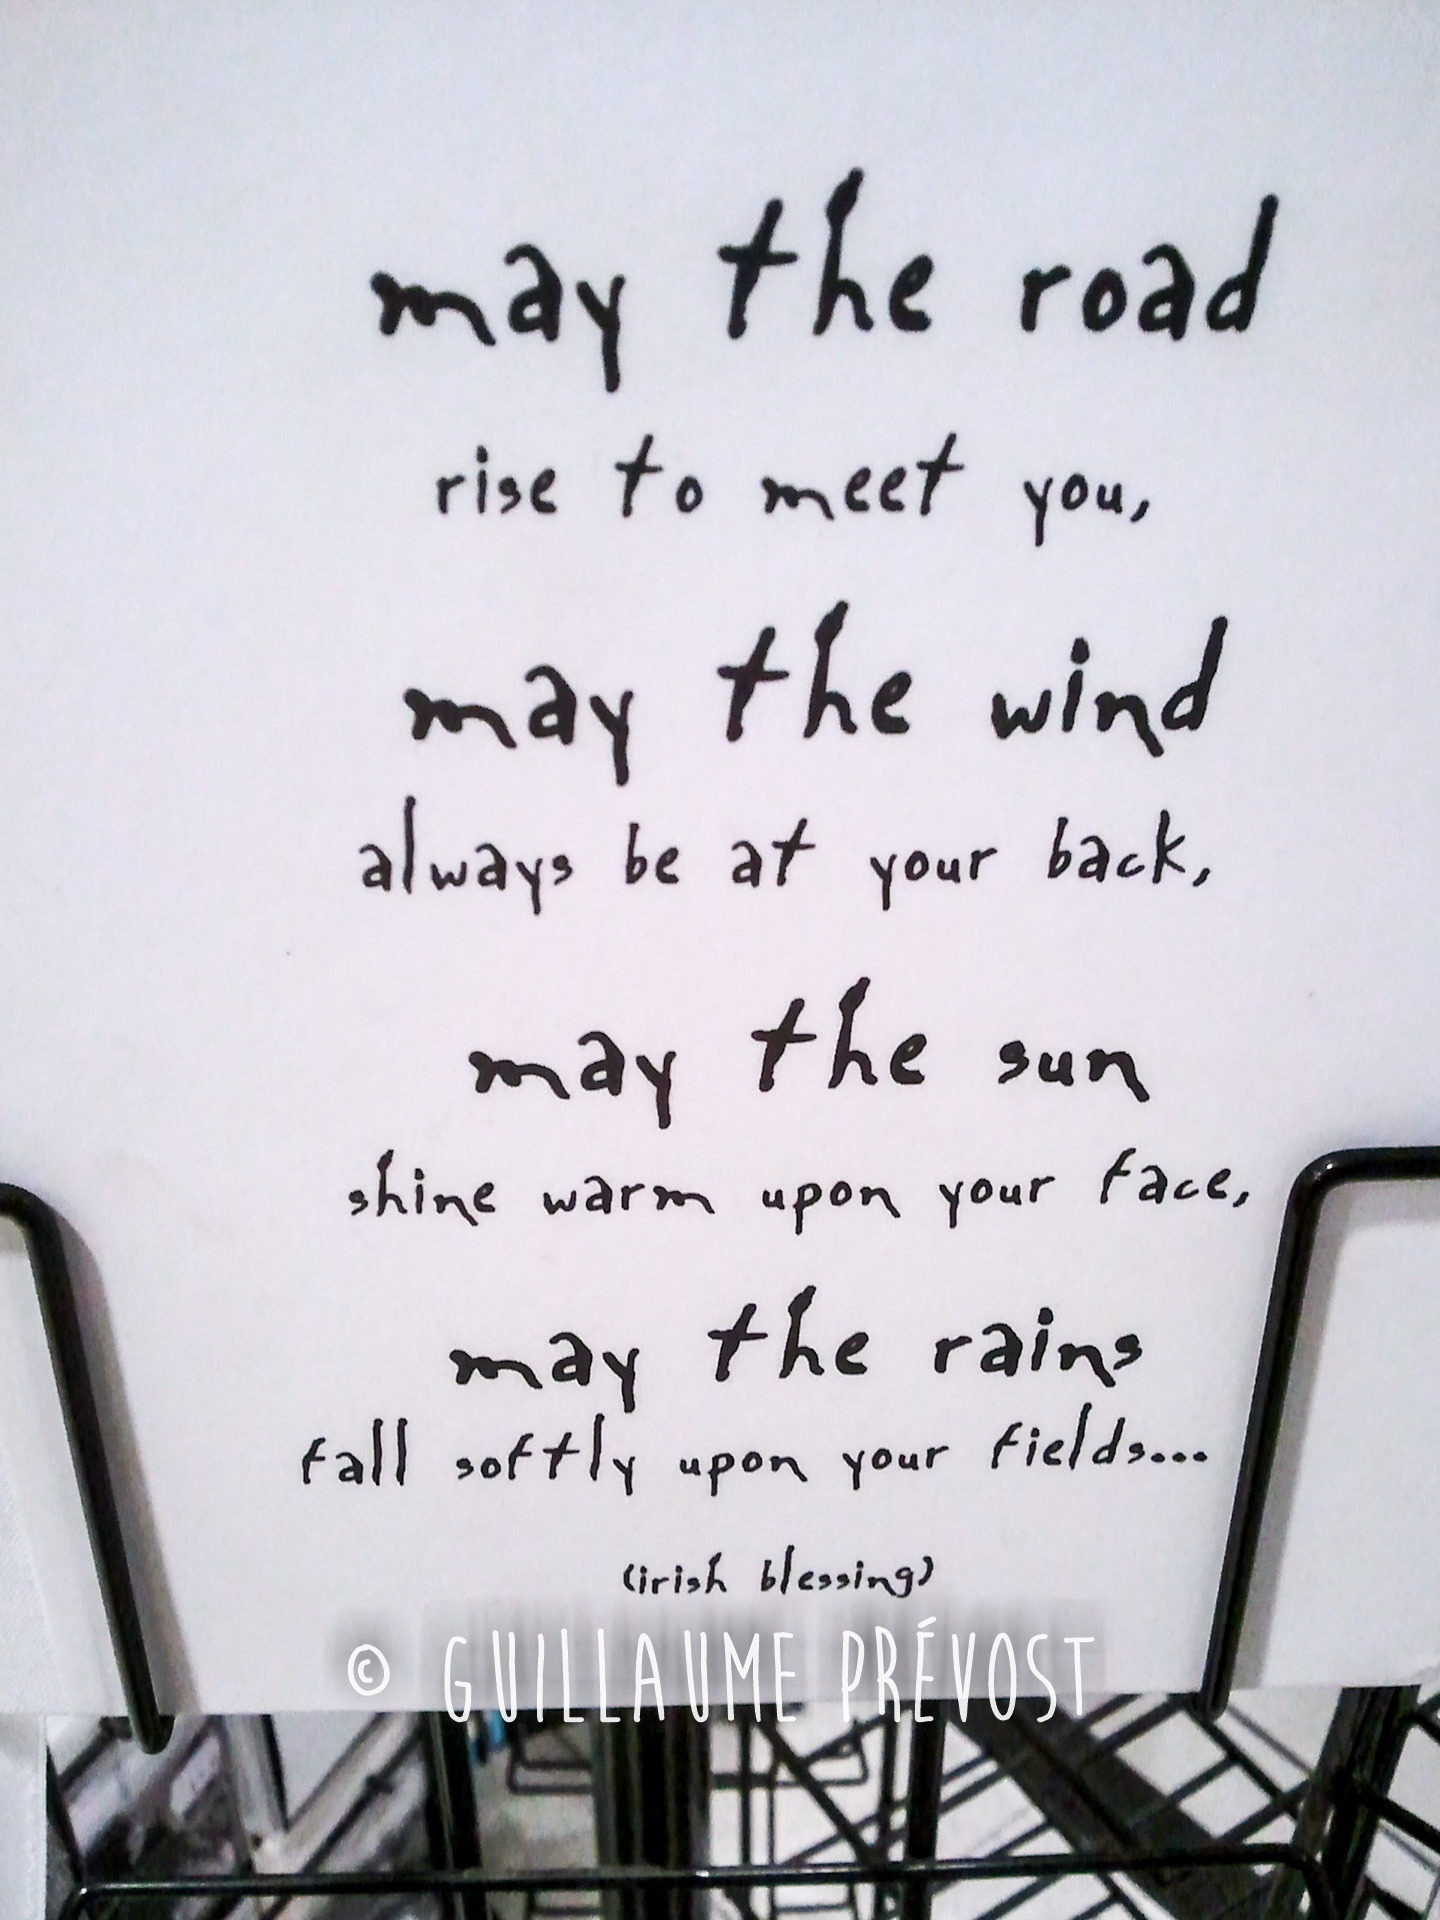 may the road
rise to meet you,
may the wind
always be at your back,
may the sun
shine warm upon your face,
may the rains
fall softly upon your fields...
(irish blessing)
© GUILLAUME PRÉVOST